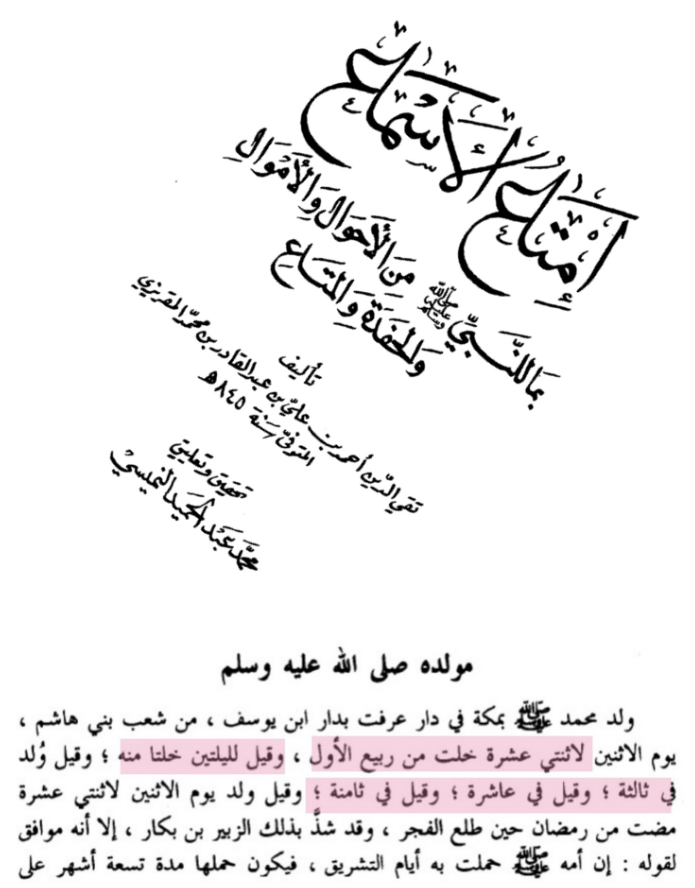 إمْتَاع الأَسْمَاع
بِمَا لِلنَّبِيِّ ﷺ مِنَ الأَحْوَالِ وَالأَمْوَالِ
وَالحَفَدَةِ وَالمَتَاعِ
تأليف
تقي الدّين أحمد بن علي بن عبد القادر بن محمّد المقريزي
المتوفى سَنة ٨٤٥ هـ
تحقيق وتعليق
محمّد عبد الحميد النميسي
مولده صلى الله عليه وسلم
ولد محمد ﷺ بمكة في دار عرفت بدار ابن يوسف ، من شعب بني هاشم ،
يوم الاثنين لاثنتي عشرة خلت من ربيع الأول ، وقيل لليلتين خلتا منه ؛ وقيل وُلد
في ثالثة ؛ وقيل في عاشرة ؛ وقيل في ثامنة ؛ وقيل ولد يوم الاثنين لاثنتي عشرة
مضت من رمضان حين طلع الفجر ، وقد شذَّ بذلك الزبير بن بكار ، إلا أنه موافق
لقوله : إن أمه ﷺ حملت به أيام التشريق ، فيكون حملها مدة تسعة أشهر على